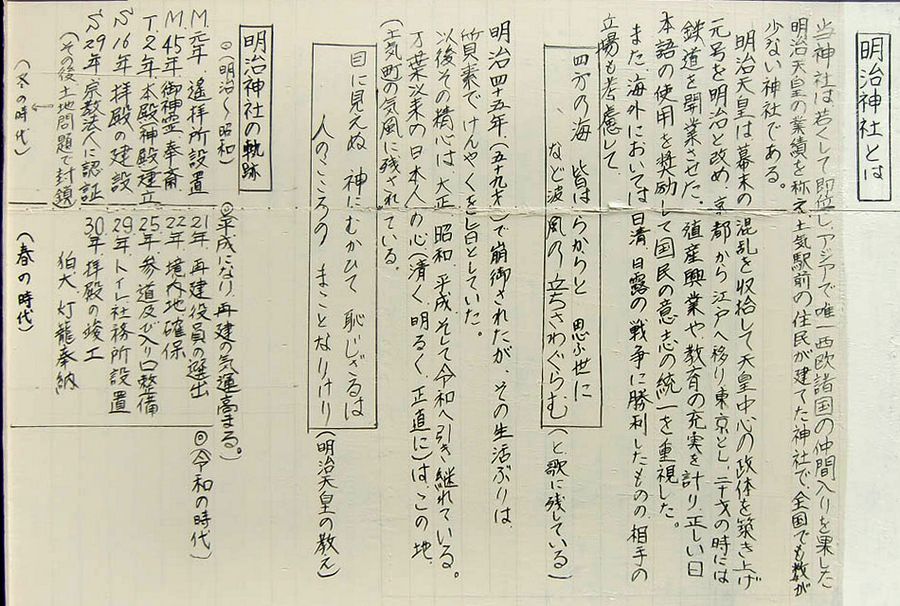 明治神社とは
当神社は若くして即位し、アジアで唯一西欧諸国の仲間入りを果した
明治天皇の業績を称え土気駅前の住民が建てた神社で、全国でも数が
少ない神社である。
明治天皇は幕末の混乱を収拾して天皇中心の政体を築き上げ
元号を明治と改め、京都から江戸へ移り東京とし、二十才の時には
鉄道を開業させた。殖産興業や教育の充実を計り、正しい日
本語の使用を奨励して国民の意志の統一を重視した。
また、海外においては日清日露の戦争に勝利したものの、相手の
立場も考慮して
四方の海 皆はらからと 思ふ世に
など波風の立ちさわぐらむ(と歌に残している)
明治四十五年(五十九才)で崩御されたが、その生活ぶりは
質素でけんやくを旨としていた。
以後その精心は、大正、昭和、平成そして令和へ引き継れている。
万葉以来の日本人の心(清く明るく、正直に)は、この地
(土気町の気風に残されている。
目に見えぬ 神にむかひて 恥じざるは
人のこころの まことなりけり(明治天皇の教え)
明治神社の軌跡
◎(明治〜昭和)
M.元年 遥拝所設置
M.45年 御神霊奉斎
T.2年 本殿神殿建立
S16年 拝殿の建設
S29年 宗教法人に認証
(その後土地問題で封鎖)
(冬の時代)
◎平成になり、再建の気運高まる。
21年 再建役員の選出
22年 境内地確保
25年 参道及び入り口整備
29年 トイレ社務所設置
30年 拝殿の竣工
狛犬、灯籠奉納
(春の時代)
◎(令和の時代)